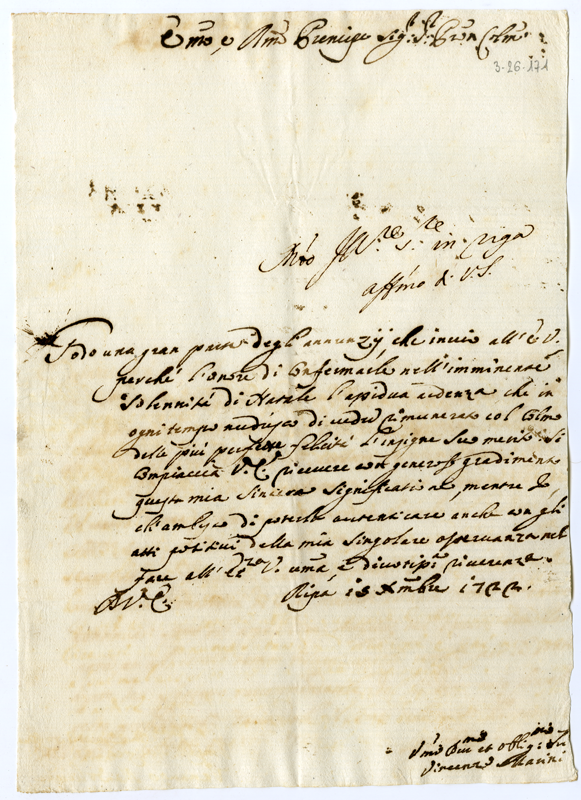 Emo, e Rmo Prencipe Sig.r Pron Colmo
3-26-171
Illre Sre in
affmo di V.S.
Godo una gran parte degl'annunzij che invio all'E V.
perché l'onore di Confermarle nell'imminente
Solennità di Natale l'assidua che in
ogni tempo nudrisco di veder rimunerato col Colmo
delle più perfette felicità l'insigne Suo merito. Si
Compiaccia V. E. ricevere con generoso gradimento
questa mia Sincera Significatione, mentre Io
ch'ambisco di poterla autenticare anche con gli
atti della mia Singolare osservanza nel
fare all' E. V. uma e divotissima riverenza.
D V. E. Ripa 18 Xmbre 1722.
Vmo Dumo et Obligmo Sre
Vincenzo Marini